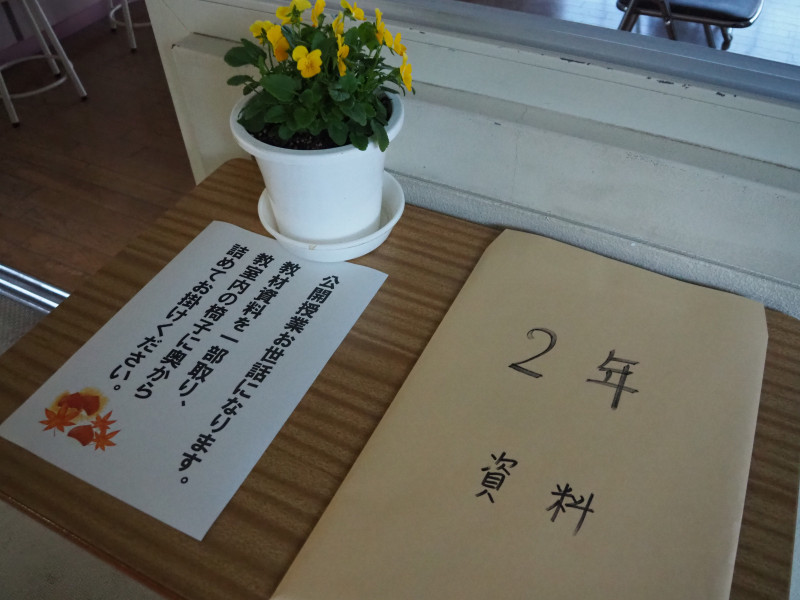 公開授業お世話になります。
教材資料を一部取り、
教室内の椅子に奥から
詰めてお掛けください。
2年
資料